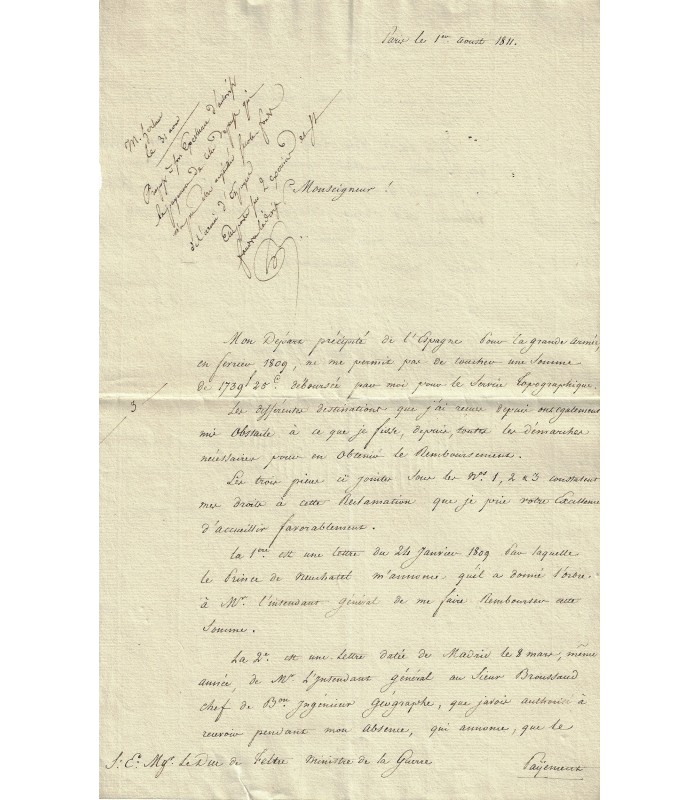 Paris le 1er Aoust 1811.
le 31 aout
Monseigneur !
Mon Départ précipité de l'Espagne pour la grande armée,
en fevrier 1809, ne me permit pas de toucher une Somme
de 1739f 25c. déboursée par moi pour le Service Topographique.
Les différentes destinations que j'ai reçues depuis ont également
mis Obstacle à ce que je fisse, depuis, toutes les démarches
nécessaires pour en Obtenir le Remboursement.
3
Les trois pièces ci jointes Sous les Nos. 1, 2 & 3 constatent
mes droits à cette Réclamation que je prie votre Excellence
d'accueillir favorablement.
la 1ere est une lettre du 24 Janvier 1809 Par laquelle
le Prince de Neuchatel m'annonce qu'il a donné l'ordre
à Mr. l'intendant général de me faire Rembourser cette
Somme.
La 2e. est une Lettre datée de Madrid le 8 mars, même
année, de Mr. L'Intendant général au Sieur Broussaud
chef de Bon. Ingénieur Géographe, que j'avois authorisé à
recevoir pendant mon absence, qui annonce, que le
S. E. Mgr. Le Duc de Feltre Ministre de la Guerre
Payement